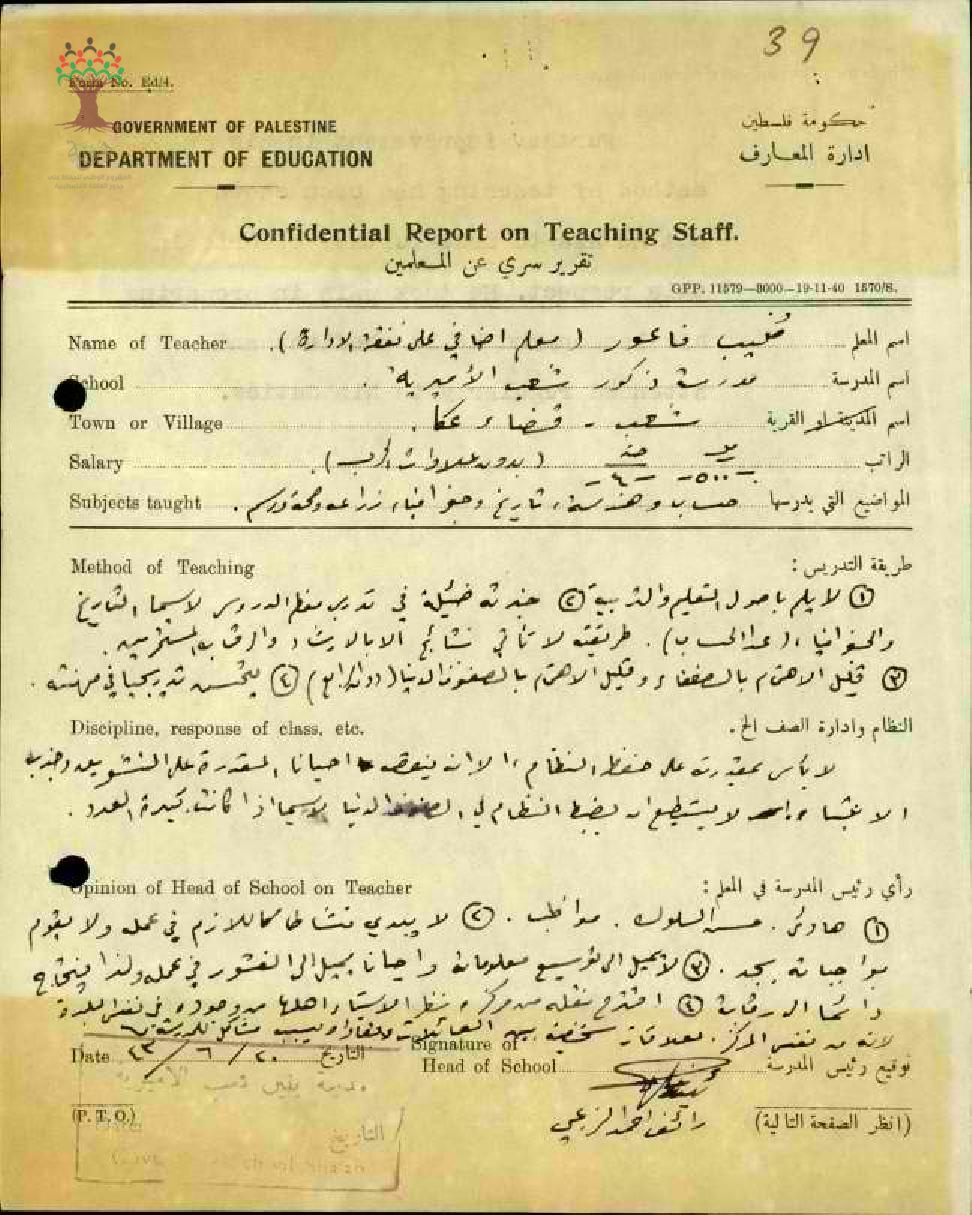 39
Form No. Ed/4.
GOVERNMENT OF PALESTINE
DEPARTMENT OF EDUCATION
حكومة فلسطين
ادارة المعارف
Confidential Report on Teaching Staff.
تقرير سري عن المعلمين
GPP. 11579—3000—19-11-40 1570/S.
Name of Teacher فاعور (معلم اضافي على نفقة الادارة). اسم المعلم
School مدرسة ذكور شعب الأميرية. اسم المدرسة
Town or Village شعب - قضاء عكا. اسم المدينة او القرية
Salary (بدون علاوات) ٥٠٠ - ٤ الراتب
Subjects taught حساب وهندسة، تاريخ وجغرافيا، زراعة وصحة ورسم. المواضيع التي يدرسها
Method of Teaching طريقة التدريس:
① لا يلم باصول التعليم والتربية ② خبرته ضئيلة في تدريس معظم الدروس لاسيما التاريخ
والجغرافيا، (عدا الحساب). طريقته لا تأتي نتائج الا بالارشاد والرقابة المستمرين.
③ قليل الاهتمام بالضعفاء وقليل الاهتمام بالصفوف الدنيا (دون الرابع) ④ يتحسن تدريجيا في مهنته.
Discipline, response of class, etc. النظام وادارة الصف الخ.
لا بأس بمقدرته على حفظ النظام، الا انه ينقصه احيانا المقدرة على التشويق وجذب
الانتباه لا يستطيع ان يضبط النظام في الصفوف الدنيا لاسيما اذا كانت كبيرة العدد.
Opinion of Head of School on Teacher رأي رئيس المدرسة في المعلم:
① هادئ. حسن السلوك. مواظب. ② لا يبدي نشاطا كاللازم في عمله ولا يقوم
بواجباته بجد. ③ لا يميل الى توسيع معلوماته واحيانا يميل الى الفتور في عمله ولذا يحتاج
دائما الى رقابة ④ اقترح نقله من مركزه نظرا لاستياء اهلها من وجوده في نفس البلدة
لانه من نفس المركز. لعلاقات شخصية بين العائلات
Date ٢٠ / ٦ / ٤٣ التاريخ
Signature of
Head of School توقيع رئيس المدرسة
(P. T. O.)
(انظر الصفحة التالية)
التاريخ